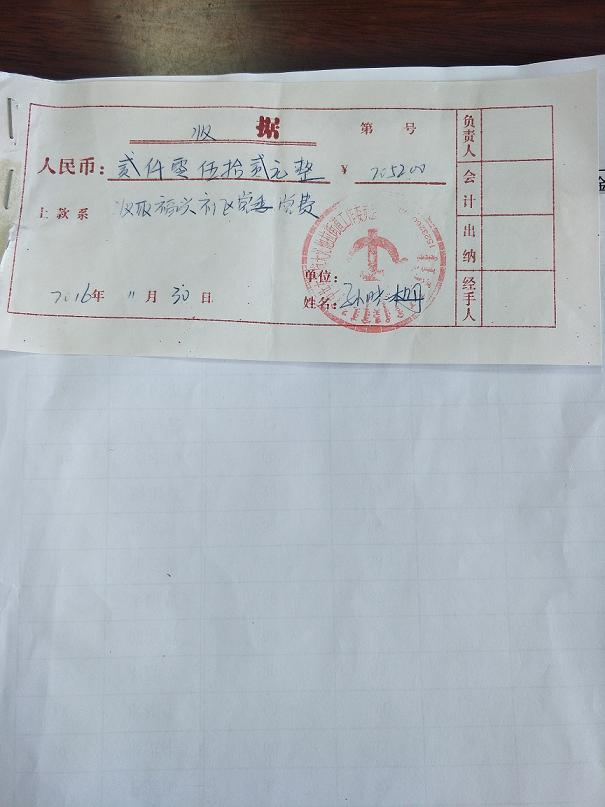 收 据
第 号
人民币: 贰仟零伍拾贰元整 ¥ 205200
上款系 收取福兴社区党委党费
2016年 11月 30日
单位:
姓名: 孙晓梅
负责人
会计
出纳
经手人